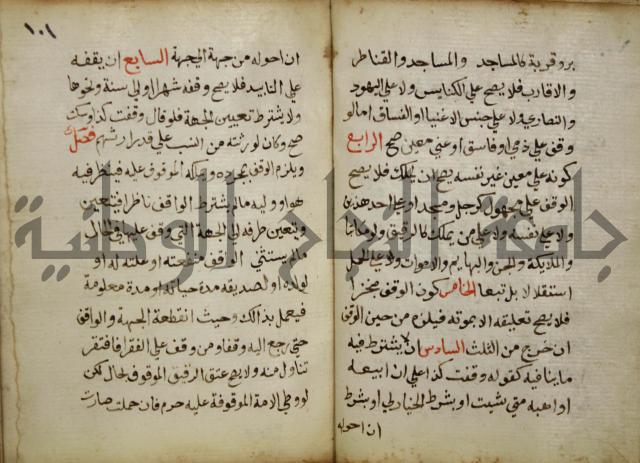 بر وقربة كالمساجد والمساجد والقناطر
والاقارب فلا يصح علي الكنايس ولا علي اليهود
والنصاري ولا علي جنس الاغنيا او الفساق اما لو
وقف علي ذمي او فاسق او غني معين صح الرابع
كونه علي معين غير نفسه يصح ان يملك فلا يصح
الوقف علي مجهول كرجل ومسجد او علي احد هذين
ولا علي نفسه ولا علي من لا يملك كالرقيق ولو مكاتبا
والملايكة والجن والبهايم والاموات ولا علي الحمل
استقلالا بل تبعا الخامس كون الوقف منجزا
فلا يصح تعليقه الا بموته فيلزم من حين الوقف
ان خرج من الثلث السادس ان لا يشترط فيه
ما ينافيه كقوله وقفت كذا علي ان ابيعه
او اهبه متي شيت او بشرط الخيار لي او بشرط
ان احوله
١٠١
ان احوله من جهة الي جهة السابع ان يقفه
علي التابيد فلا يصح وقفه شهرا او الي سنة ونحوها
ولا يشترط تعيين الجهة فلو قال وقفت كذا وسكت
صح وكان لورثته من النسب علي قدر ارثهم فصل
ويلزم الوقف بمجرده ويملكه الموقوف عليه فينظر فيه
هو او وليه ما لم يشترط الواقف ناظرا فيتعين
ويتعين صرفه الي الجهة التي وقف عليها في الحال
ما لم يستثني الواقف منفعته او غلته له او
لولده او لصديقه مدة حياته او مدة معلومة
فيعمل بذالك وحيث انقطعة الجهة والواقف
حي رجع اليه وقفا ومن وقف علي الفقرا فافتقر
تناول منه ولا يصح عتق الرقيق الموقوف بحال لكن
لو وطي الامة الموقوفة عليه حرم فان حملت صارت
جامعة النجاح الوطنية